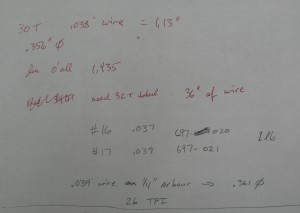 30T .038" wire = 1.13"
.356" Ø "
for o'all 1.435
need 32T total 36" of wire
#16 .037 697-020
#17 .039 697-021
1 lb
.039 wire on 1/4" arbour ⇒ .361 Ø
26 TPI